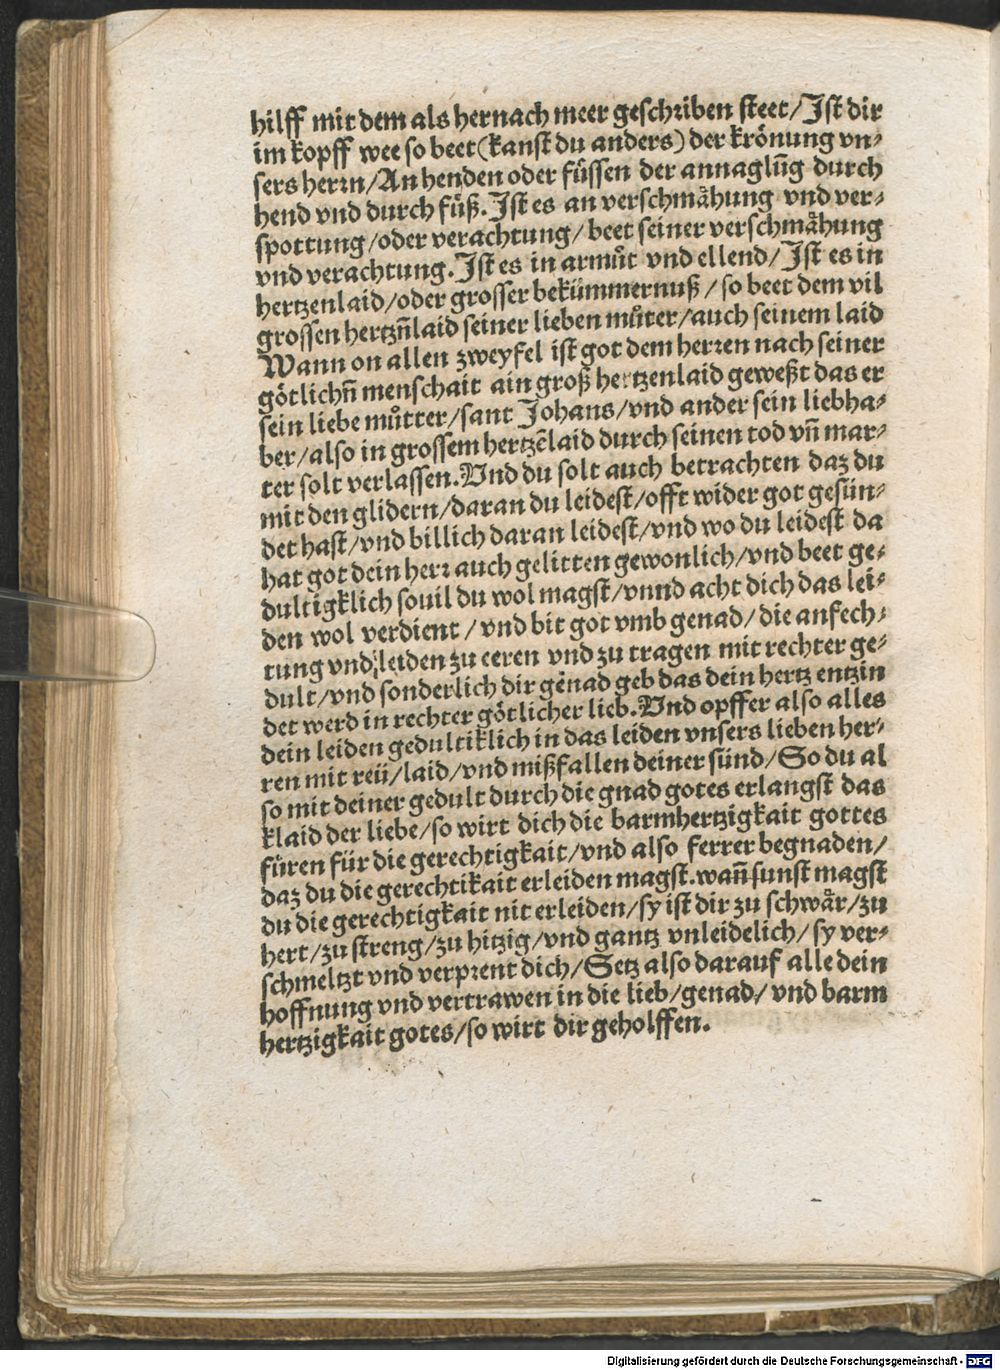 hilff mit dem als hernach meer geschriben steet/Ist dir
im kopff wee so beet(kanst du anders) der krönung vn⸗
sers herrn/An henden oder füssen der annaglūg durch
hend vnd durch füß. Ist es an verschmähung vnd ver⸗
spottung/oder verachtung/beet seiner verschmähung
vnd verachtung. Ist es in armůt vnd ellend/Ist es in
hertzenlaid/oder grosser bekümmernuß/so beet dem vil
grossen hertzn̄laid seiner lieben můter/auch seinem laid
Wann on allen zweyfel ist got dem herren nach seiner
götlichn̄ menschait ain groß hertzenlaid geweßt das er
sein liebe můtter/sant Johans/vnd ander sein liebha⸗
ber/also in grossem hertzēlaid durch seinen tod vn̄ mar⸗
ter solt verlassen. Vnd du solt auch betrachten daz du
mit den glidern/daran du leidest/offt wider got gesün⸗
det hast/vnd billich daran leidest/vnd wo du leidest da
hat got dein herr auch gelitten gewonlich/vnd beet ge⸗
dultigklich souil du wol magst/vnnd acht dich das lei⸗
den wol verdient/vnd bit got vmb genad/die anfech⸗
tung vnd leiden zu eeren vnd zu tragen mit rechter ge⸗
dult/vnd sonderlich dir genad geb das dein hertz entzin
det werd in rechter götlicher lieb. Vnd opffer also alles
dein leiden gedultiklich in das leiden vnsers lieben her⸗
ren mit reü/laid/vnd mißfallen deiner sünd/So du al
so mit deiner gedult durch die gnad gotes erlangst das
klaid der liebe/so wirt dich die barmhertzigkait gottes
füren für die gerechtigkait/vnd also ferrer begnaden/
daz du die gerechtikait erleiden magst. wan̄ sunst magst
du die gerechtigkait nit erleiden/sy ist dir zu schwär/zu
hert/zu streng/zu hitzig/vnd gantz vnleidelich/sy ver⸗
schmeltzt vnd verprent dich/Setz also darauf alle dein
hoffnung vnd vertrawen in die lieb/genad/vnd barm
hertzigkait gotes/so wirt dir geholffen.
Digitalisierung gefördert durch die Deutsche Forschungsgemeinschaft - DFG